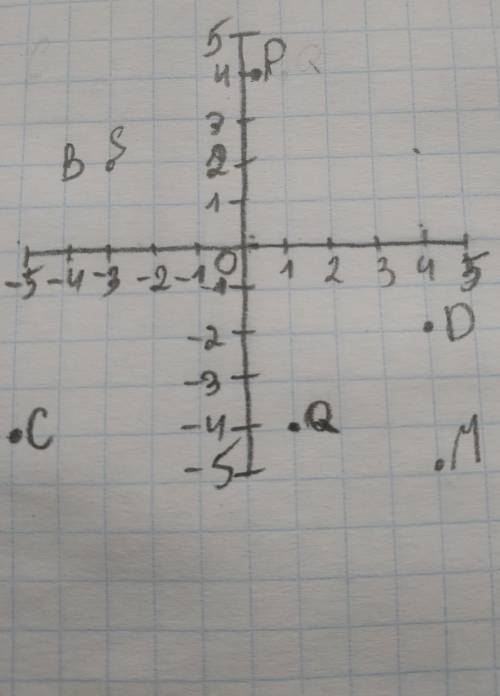 5
4 P
3
B S 2
1
-5 -4 -3 -2 -1 0 1 2 3 4 5
-1
-2 D
-3
C -4 Q
-5 M